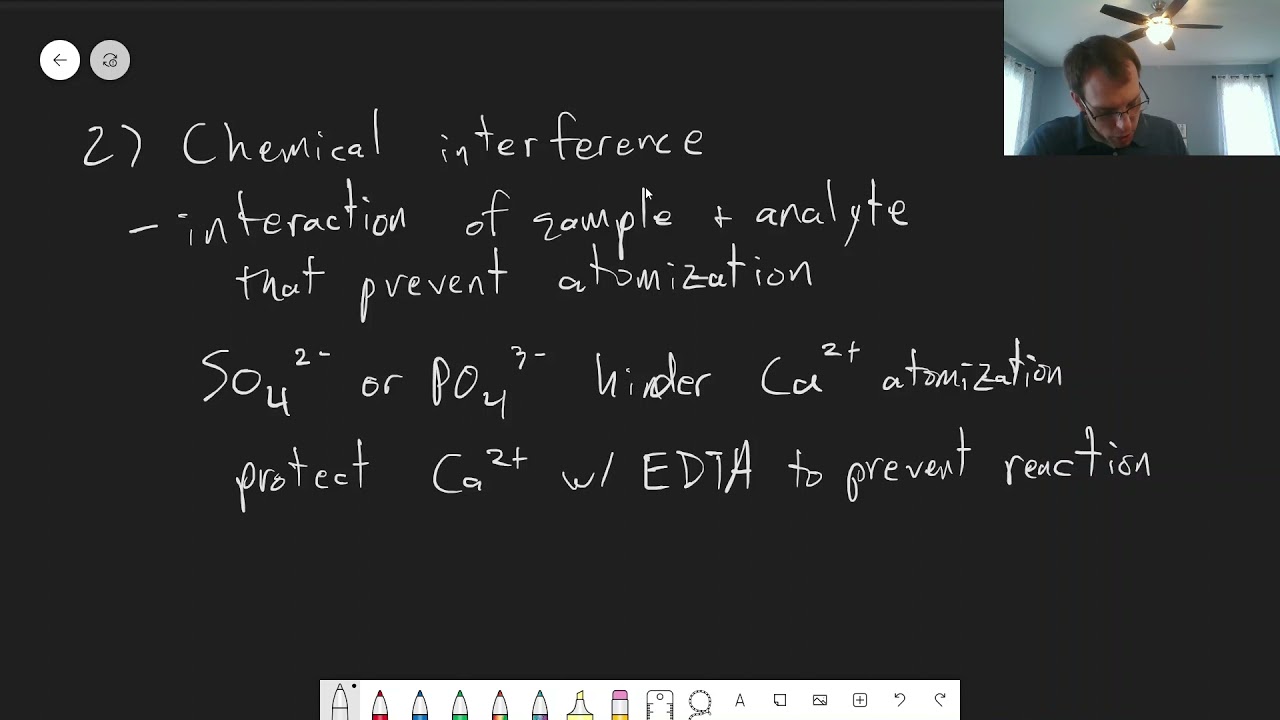 2) Chemical interference
- interaction of sample + analyte
that prevent atomization
SO₄²⁻ or PO₄³⁻ hinder Ca²⁺ atomization
protect Ca²⁺ w/ EDTA to prevent reaction
A